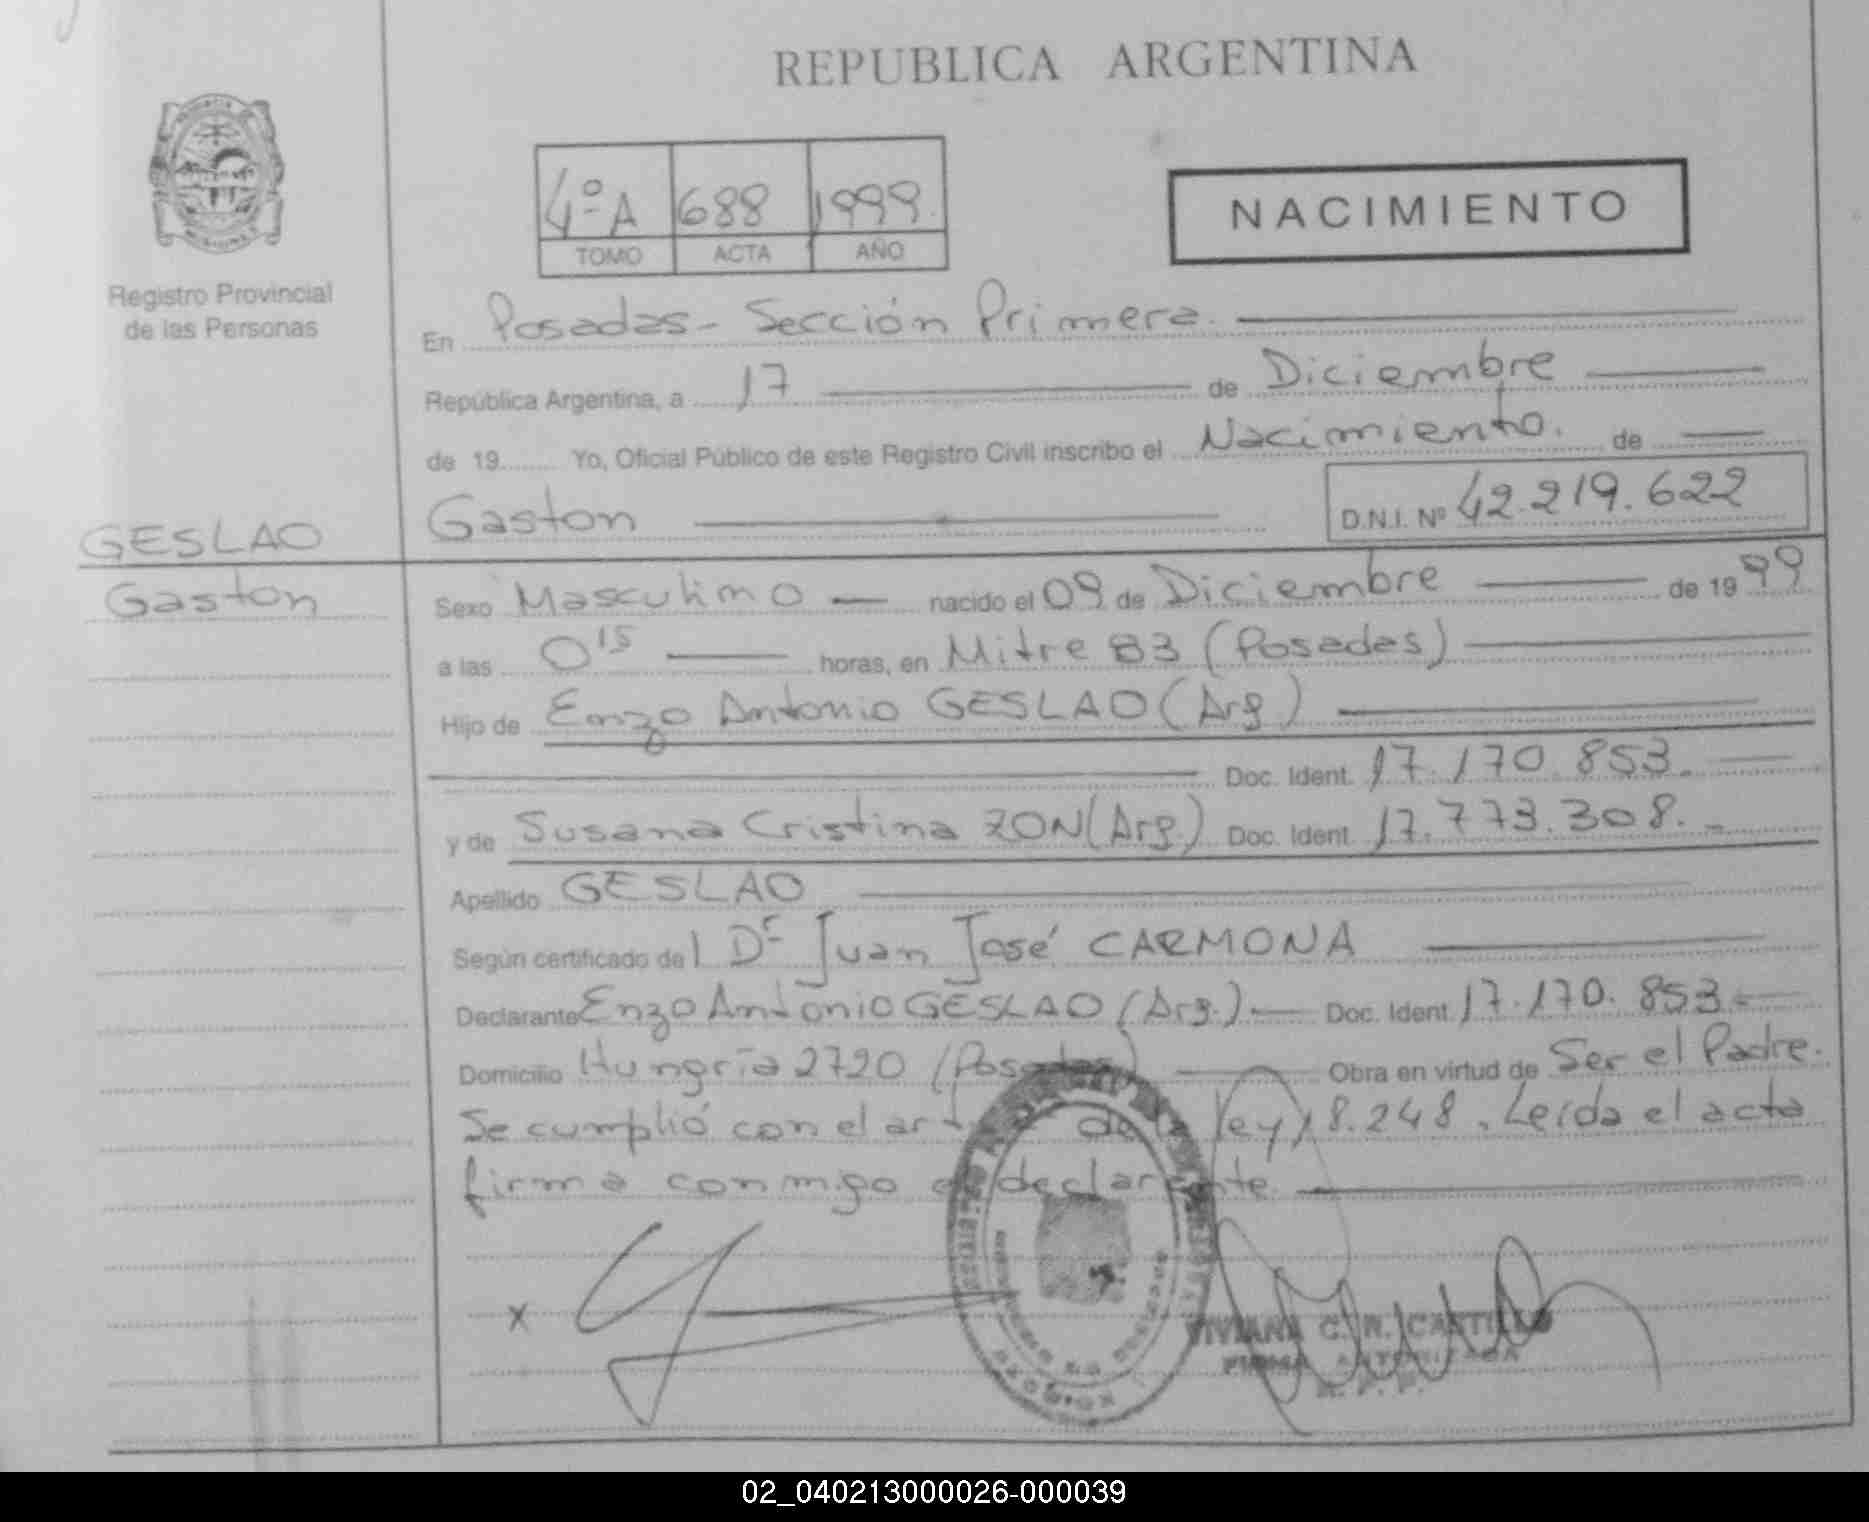 REPUBLICA ARGENTINA
4º A 688 1999
TOMO ACTA AÑO
NACIMIENTO
Registro Provincial
de las Personas
En Posadas - Sección Primera.
República Argentina, a 17 de Diciembre
de 19 Yo, Oficial Público de este Registro Civil inscribo el Nacimiento. de
GESLAO Gaston D.N.I. Nº 42.219.622
Gaston Sexo Masculino nacido el 09 de Diciembre de 19 99
a las 0 15 horas, en Mitre 83 (Posadas)
Hijo de Enzo Antonio GESLAO (Arg.)
Doc. Ident. 17.170.853.
y de Susana Cristina ZON (Arg.) Doc. Ident. 17.773.308.-
Apellido GESLAO
Según certificado del Dr Juan José CARMONA
Declarante Enzo Antonio GESLAO (Arg.) Doc. Ident. 17.170.853
Domicilio Hungría 2720 (Posadas) Obra en virtud de Ser el Padre.
Se cumplió con el art de la ley 18.248. Leída el acta
firma conmigo el declarante.
X
VIVIANA C. R. CASTILLO
FIRMA AUTORIZADA
02_040213000026-000039